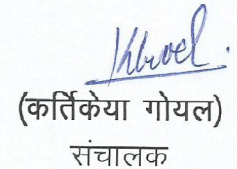 (कर्तिकेया गोयल)
संचालक